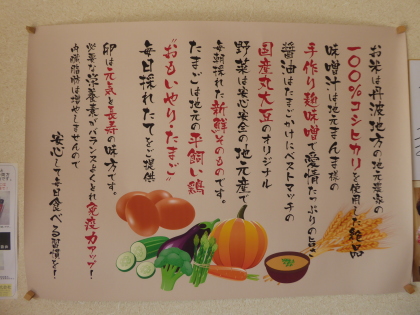 お米は丹波地方の地元農家の
100%コシヒカリを使用した絶品
味噌汁は地元まんま様の
手作り麹味噌で愛情たっぷりの旨さ
醤油はたまごかけにベストマッチの
国産丸大豆のオリジナル
野菜は安心安全の地元産で
毎朝採れた新鮮そのものです。
たまごは地元の平飼い鶏
"おもいやりたまご"
毎日採れたてをご提供
卵は元気と長寿の味方です。
必要な栄養素がバランスよくとれ免疫力アップ!
内臓脂肪は増やしませんので
安心して毎日食べる習慣を!